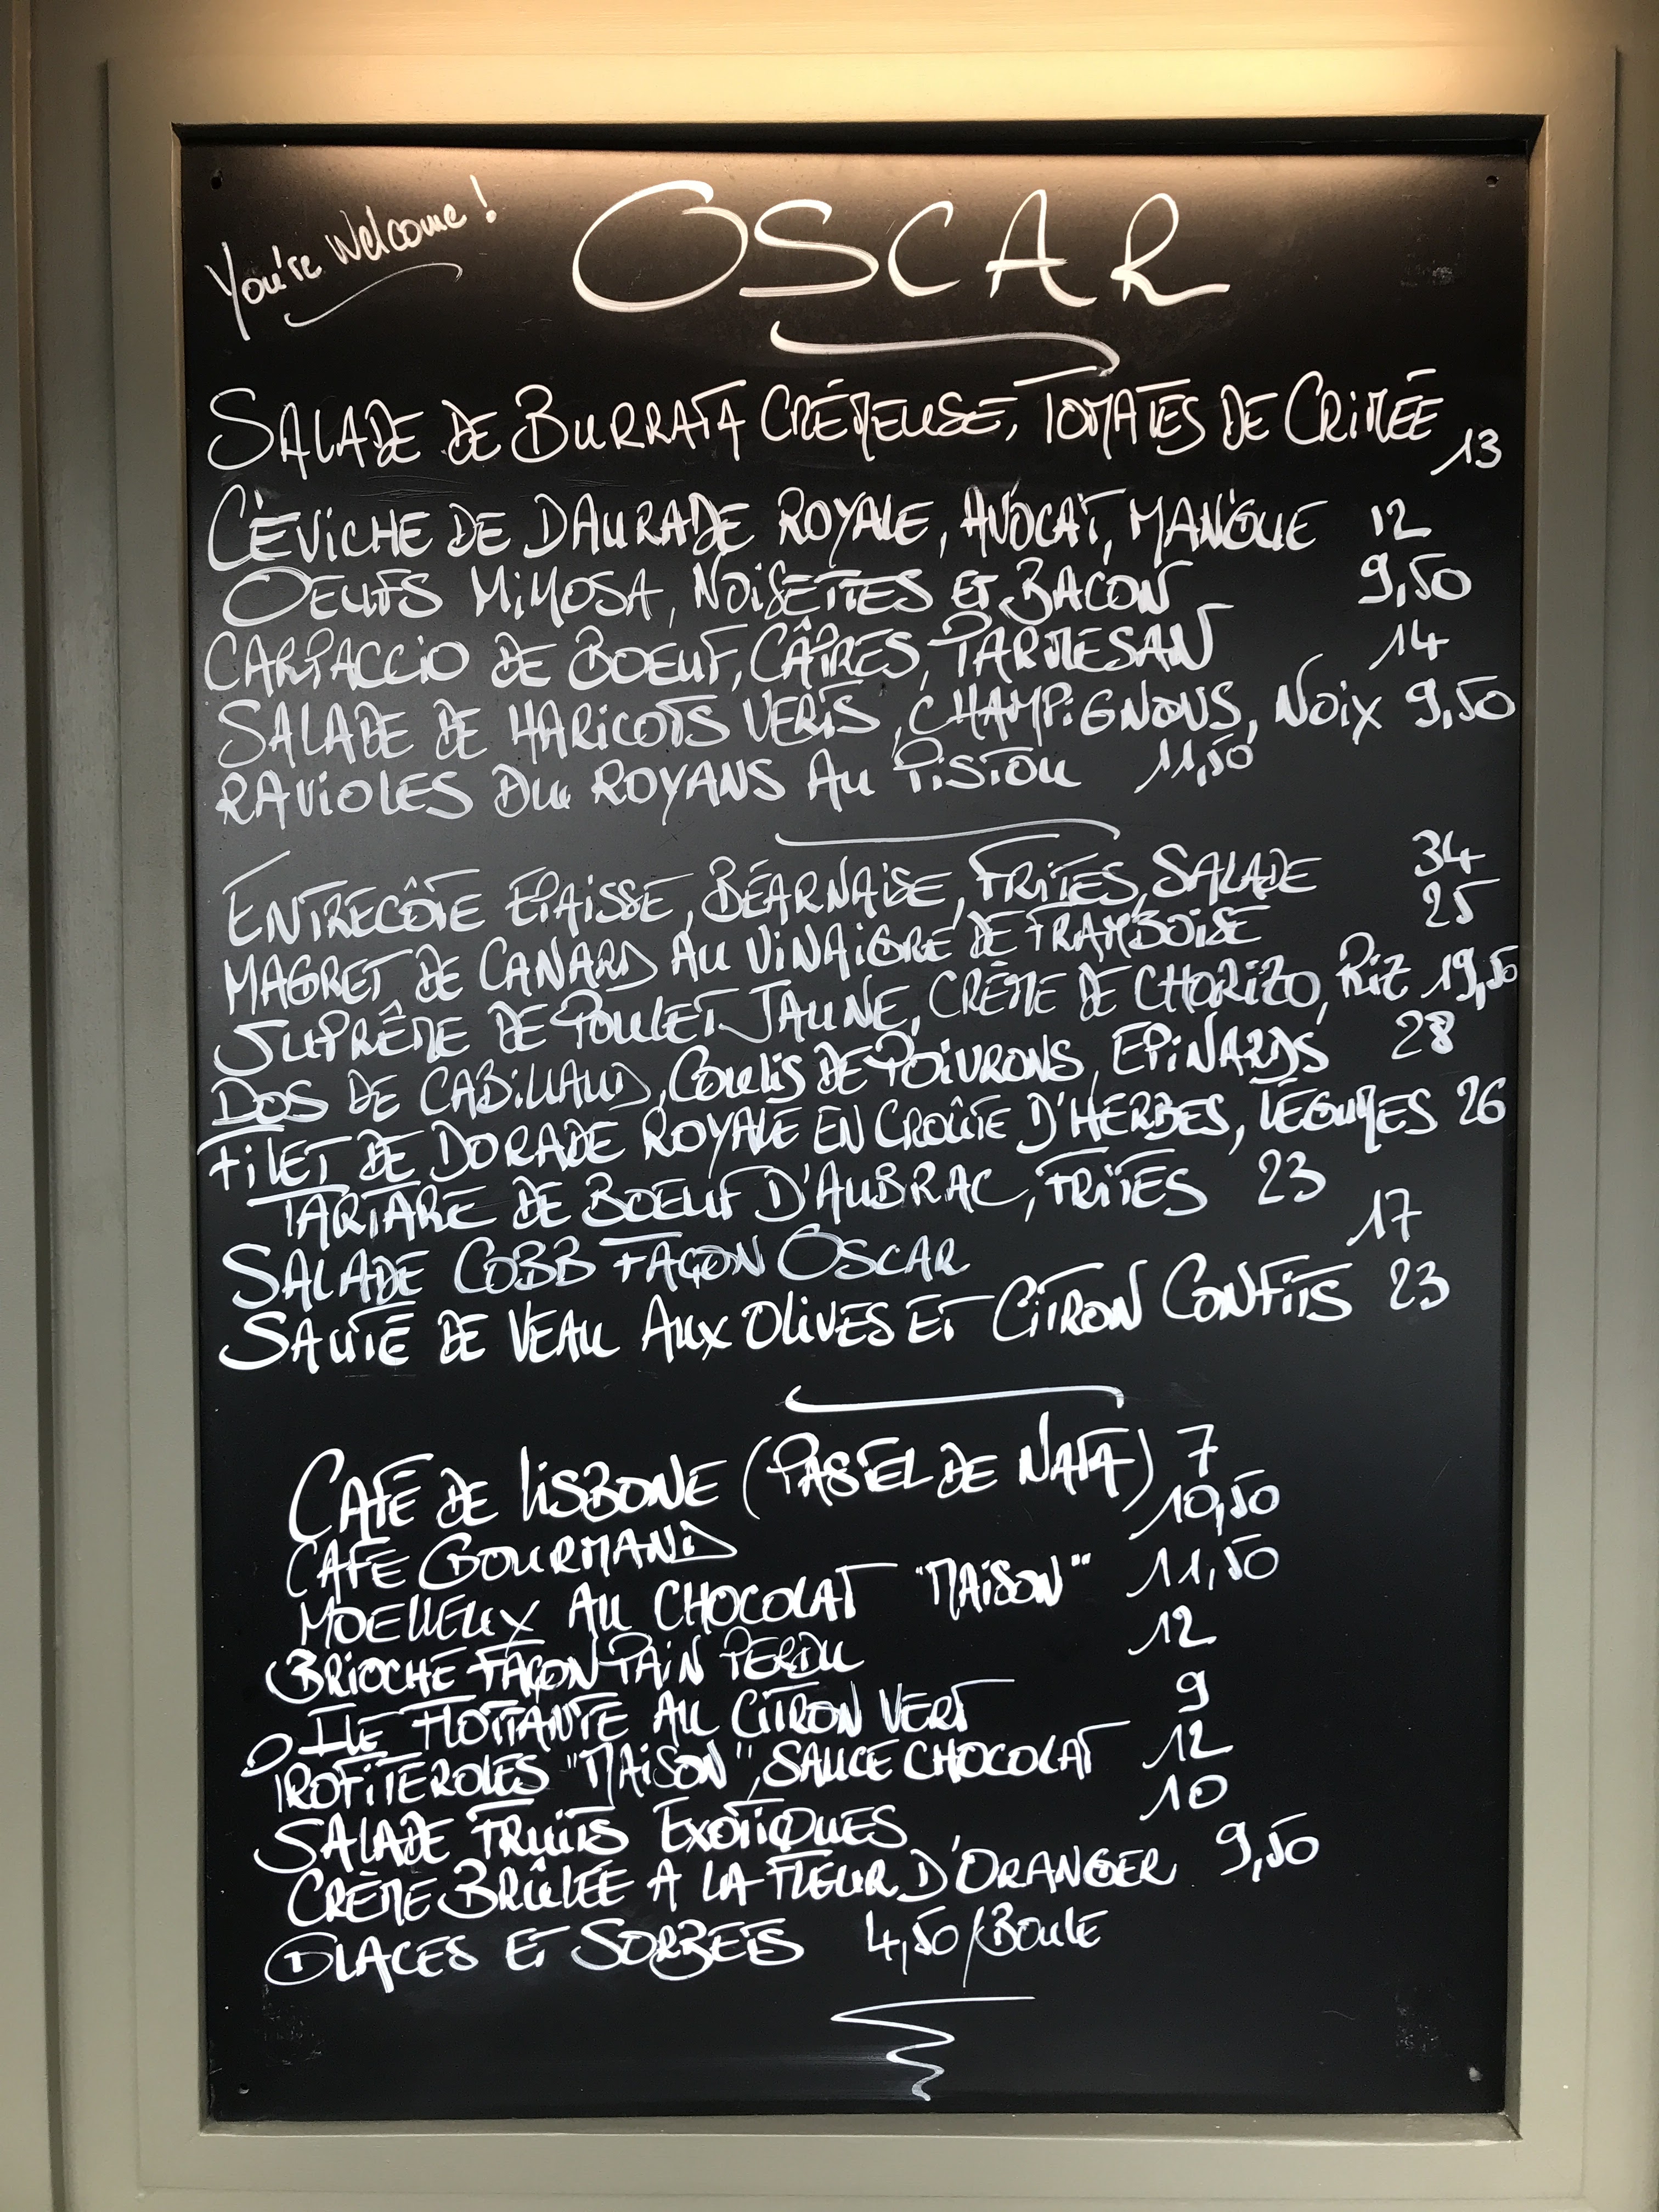 You're Welcome!
OSCAR
SALADE DE BURRATA CRÉMEUSE, TOMATES DE CRIMÉE 13
CÉVICHE DE DAURADE ROYALE, AVOCAT, MANGUE 12
OEUFS MIMOSA, NOISETTES ET BACON 9,50
CARPACCIO DE BOEUF, CÂPRES, PARMESAN 14
SALADE DE HARICOTS VERTS, CHAMPIGNONS, NOIX 9,50
RAVIOLES DU ROYANS AU PISTOU 11,50
ENTRECÔTE EPAISSE, BÉARNAISE, FRITES, SALADE 34
MAGRET DE CANARD AU VINAIGRE DE FRAMBOISE 25
SUPRÊME DE POULET JAUNE, CRÈME DE CHORIZO, RIZ 19,50
DOS DE CABILLAUD, COULIS DE POIVRONS, EPINARDS 28
FILET DE DORADE ROYALE EN CROÛTE D'HERBES, LÉGUMES 26
TARTARE DE BOEUF D'AUBRAC, FRITES 23
SALADE COBB FAÇON OSCAR 17
SAUTÉ DE VEAU AUX OLIVES ET CITRON CONFITS 23
CAFÉ DE LISBONE (PASTEL DE NATA) 7
CAFÉ GOURMAND 10,50
MOELLEUX AU CHOCOLAT "MAISON" 11,50
BRIOCHE FAÇON PAIN PERDU 12
ILE FLOTTANTE AU CITRON VERT 9
PROFITEROLES "MAISON", SAUCE CHOCOLAT 12
SALADE FRUITS EXOTIQUES 10
CRÈME BRÛLÉE A LA FLEUR D'ORANGER 9,50
GLACES ET SORBETS 4,50/BOULE